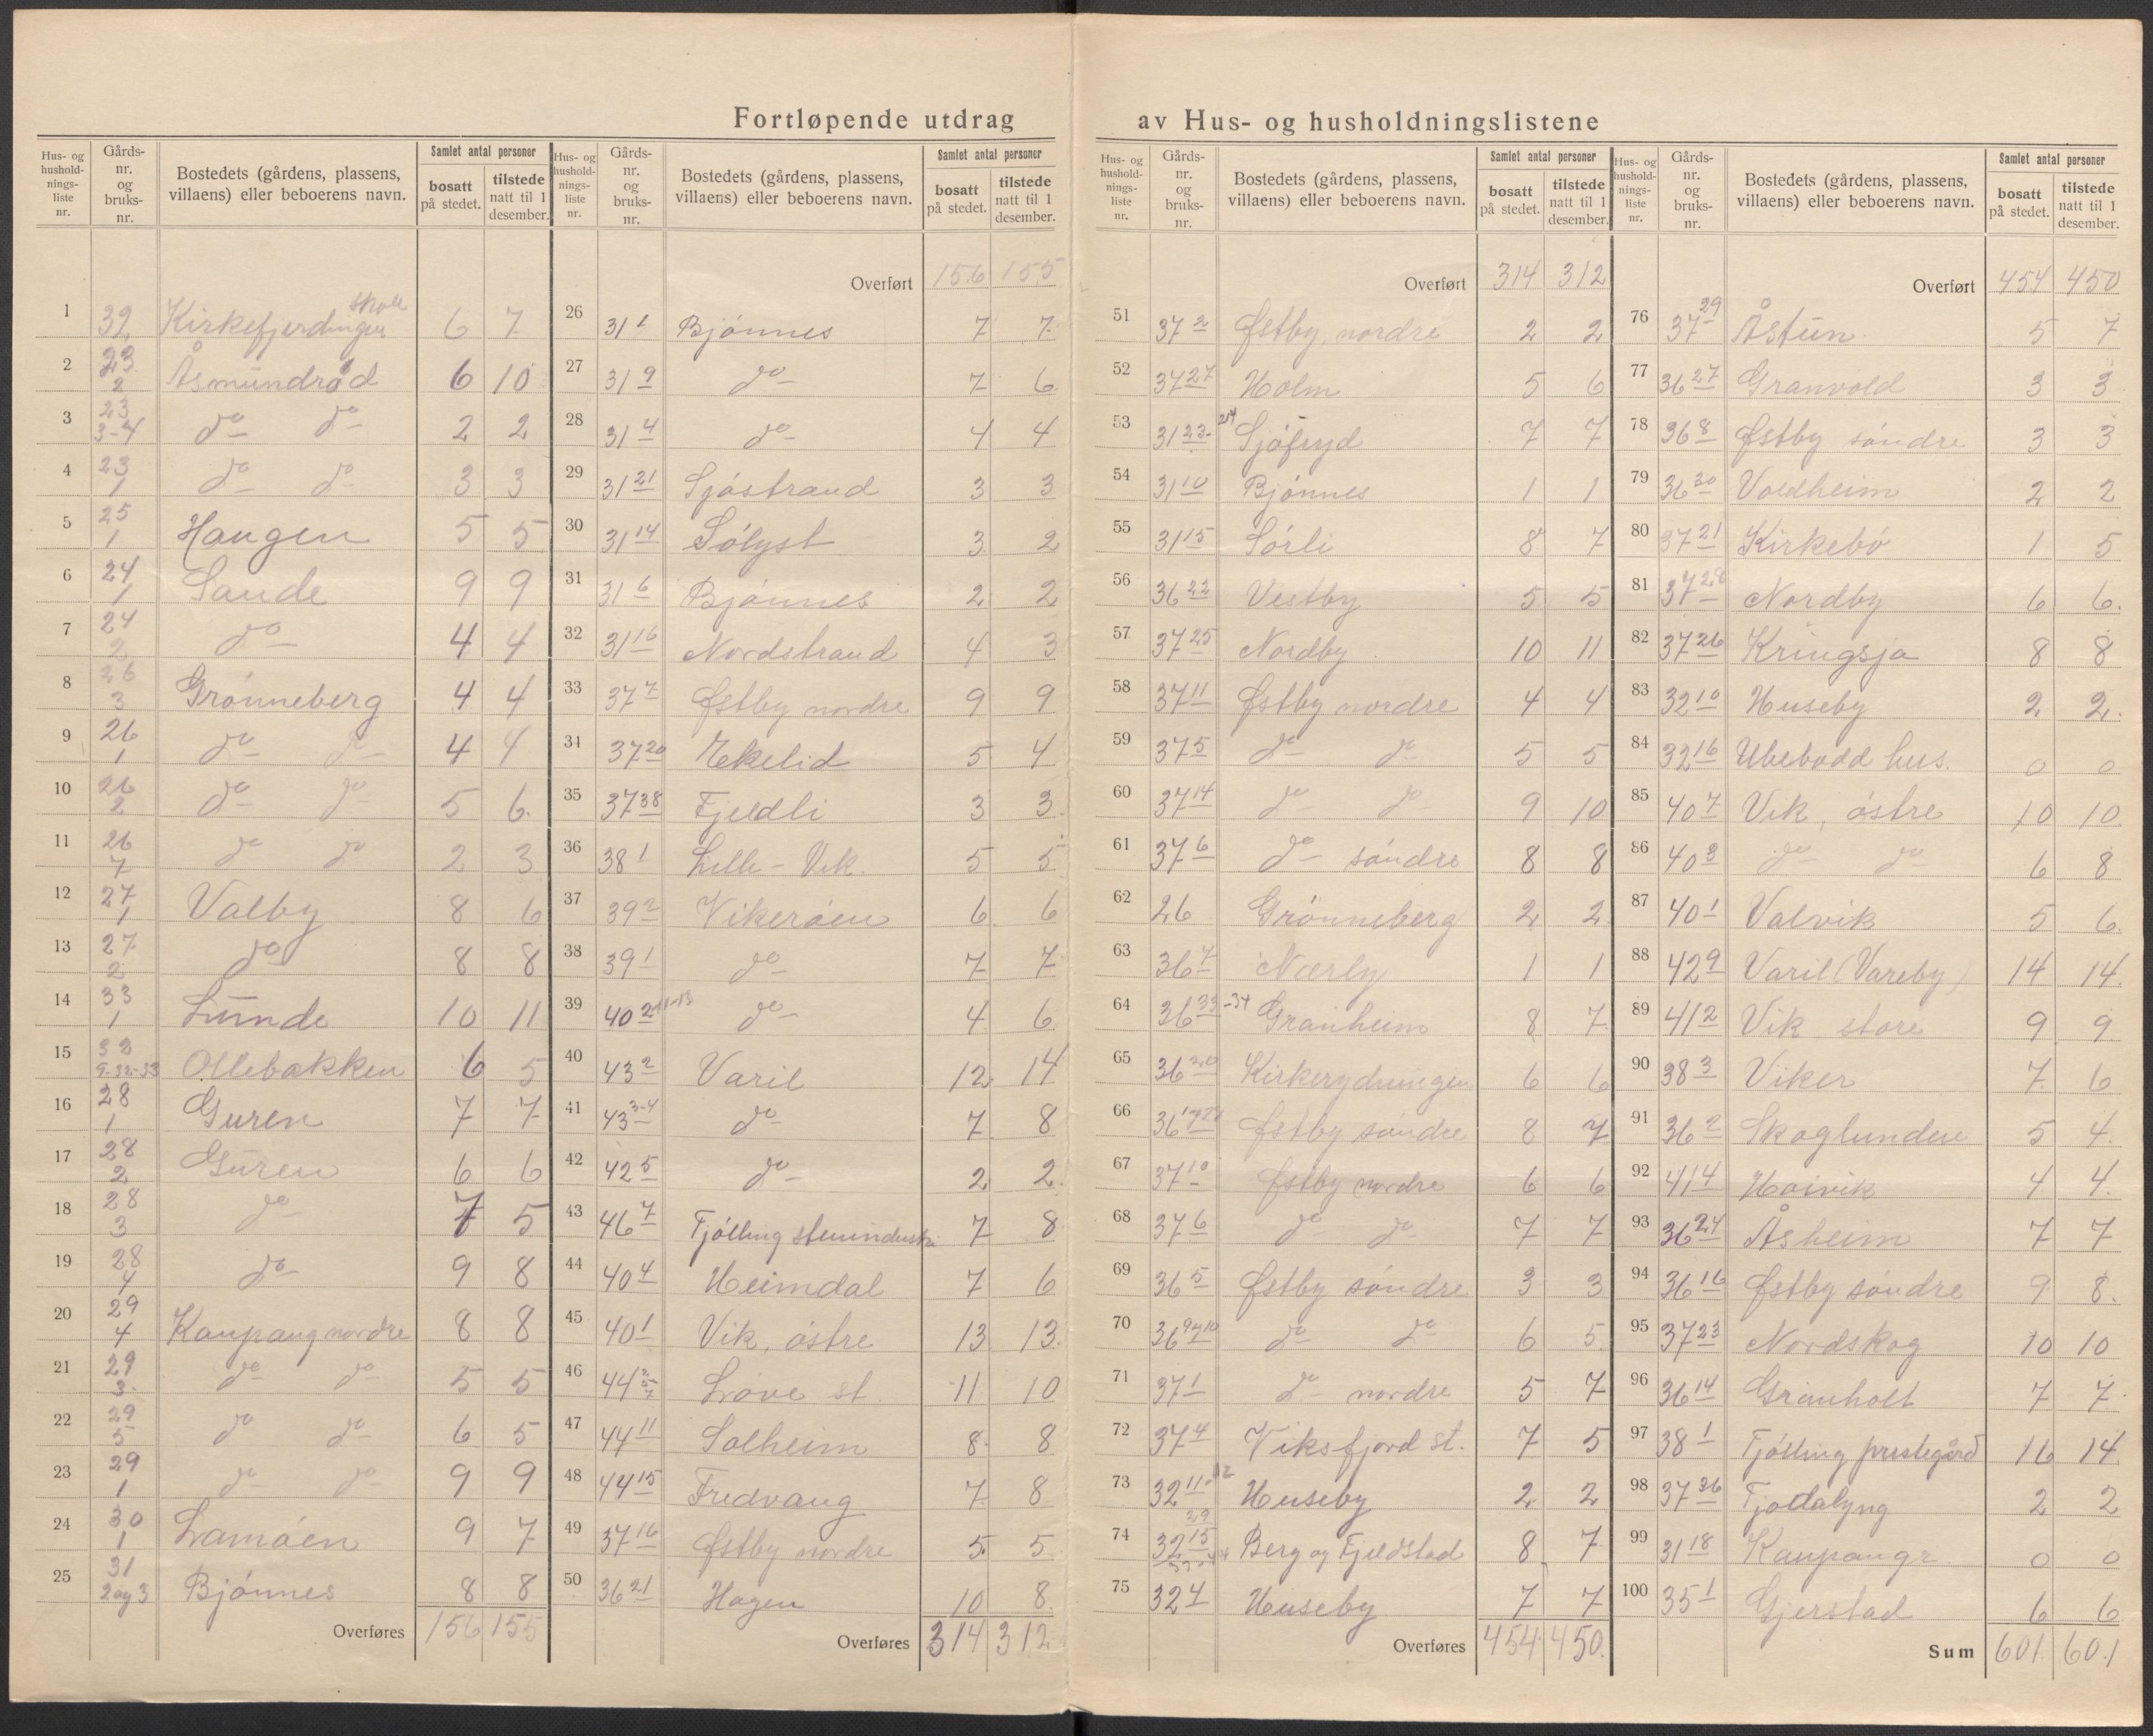 Fortløpende utdrag av Hus- og husholdningslistene
Hus- og hushold-nings-liste nr. | Gårds-nr. og bruks-nr. | Bostedets (gårdens, plassens, villaens) eller beboerens navn. | Samlet antal personer | bosatt på stedet. | tilstede natt til 1 desember.
1 32 Kirkefjerdingen skole 6 7
2 23 2 Åsmundrød 6 10
3 23 3-4 do do 2 2
4 23 1 do do 3 3
5 25 1 Haugen 5 5
6 24 1 Sande 9 9
7 24 2 do 4 4
8 26 3 Grønneberg 4 4
9 26 1 do do 4 4
10 26 2 do do 5 6
11 26 7 do do 2 3
12 27 1 Valby 8 6
13 27 2 do 8 8
14 33 1 Lunde 10 11
15 32 9-32-33 Ollebakken 6 5
16 28 1 Guren 7 7
17 28 2 Guren 6 6
18 28 3 do 7 5
19 28 4 do 9 8
20 29 4 Kaupang nordre 8 8
21 29 3 do do 5 5
22 29 5 do do 6 5
23 29 1 do do 9 9
24 30 1 Lamøen 9 7
25 31 2 og 3 Bjønnes 8 8
Overføres 156 155
Hus- og hushold-nings-liste nr. | Gårds-nr. og bruks-nr. | Bostedets (gårdens, plassens, villaens) eller beboerens navn. | Samlet antal personer | bosatt på stedet. | tilstede natt til 1 desember.
Overført 156 155
26 31 1 Bjønnes 7 7
27 31 9 do 7 6
28 31 4 do 4 4
29 31 21 Sjøstrand 3 3
30 31 14 Sølyst 3 2
31 31 6 Bjønnes 2 2
32 31 16 Nordstrand 4 3
33 37 7 Østby nordre 9 9
34 37 20 Ekelid 5 4
35 37 38 Fjeldli 3 3
36 38 1 Lille-Vik 5 5
37 39 2 Vikerøen 6 6
38 39 1 do 7 7
39 40 2-11-13 do 4 6
40 43 2 Varil 12 14
41 43 3-4 do 7 8
42 42 5 do 2 2
43 46 7 Tjølling stenindustri 7 8
44 40 4 Heimdal 7 6
45 40 1 Vik, østre 13 13
46 44 Løve st. 11 10
47 44 11 Solheim 8 8
48 44 15 Fredvang 7 8
49 37 16 Østby nordre 5 5
50 36 21 Hagen 10 8
Overføres 314 312
Hus- og hushold-nings-liste nr. | Gårds-nr. og bruks-nr. | Bostedets (gårdens, plassens, villaens) eller beboerens navn. | Samlet antal personer | bosatt på stedet. | tilstede natt til 1 desember.
Overført 314 312
51 37 2 Østby, nordre 2 2
52 37 27 Holm 5 6
53 31 23-24 Sjøfryd 7 7
54 31 10 Bjønnes 1 1
55 31 15 Sørli 8 7
56 36 22 Vestby 5 5
57 37 25 Nordby 10 11
58 37 11 Østby nordre 4 4
59 37 5 do do 5 5
60 37 14 do do 9 10
61 37 6 do søndre 8 8
62 26 Grønneberg 2 2
63 36 7 Nærby 1 1
64 36 33-34 Granheim 8 7
65 36 20 Kirkerydningen 6 6
66 36 Østby søndre 8 7
67 37 10 Østby nordre 6 6
68 37 6 do do 7 7
69 36 5 Østby søndre 3 3
70 36 9 og 10 do do 6 5
71 37 1 do nordre 5 7
72 37 4 Viksfjord st. 7 5
73 32 11-12 Huseby 2 2
74 32 15 29 Berg og Fjeldstad 8 7
75 32 4 Huseby 7 7
Overføres 454 450
Hus- og hushold-nings-liste nr. | Gårds-nr. og bruks-nr. | Bostedets (gårdens, plassens, villaens) eller beboerens navn. | Samlet antal personer | bosatt på stedet. | tilstede natt til 1 desember.
Overført 454 450
76 37 29 Åstun 5 7
77 36 27 Granvold 3 3
78 36 8 Østby søndre 3 3
79 36 30 Voldheim 2 2
80 37 21 Kirkebø 1 5
81 37 28 Nordby 6 6
82 37 26 Kringsjå 8 8
83 32 10 Huseby 2 2
84 32 16 Ubebodd hus. 0 0
85 40 7 Vik, østre 10 10
86 40 3 do do 6 8
87 40 1 Valvik 5 6
88 42 9 Varil (Vareby) 14 14
89 41 2 Vik store 9 9
90 38 3 Viker 7 6
91 36 2 Skoglunden 5 4
92 41 4 Høivik 4 4
93 36 24 Åsheim 7 7
94 36 16 Østby søndre 9 8
95 37 23 Nordskog 10 10
96 36 14 Granholt 7 7
97 38 1 Tjølling prestegård 16 14
98 37 36 Tjodalyng 2 2
99 31 18 Kaupang 0 0
100 35 1 Gjerstad 6 6
Sum 601 601